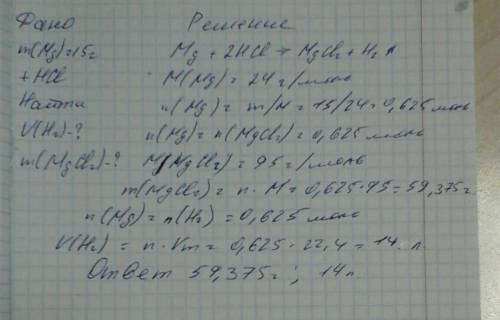 Дано Решение
m(Mg)=15г Mg + 2HCl → MgCl2 + H2↑
+HCl M(Mg) = 24 г/моль
Найти n(Mg) = m/M = 15/24 = 0,625 моль
V(H2)-? n(Mg) = n(MgCl2) = 0,625 моль
m(MgCl2)-? M(MgCl2) = 95 г/моль
m(MgCl2) = n · M = 0,625 · 95 = 59,375г
n(Mg) = n(H2) = 0,625 моль
V(H2) = n · Vm = 0,625 · 22,4 = 14 л
Ответ 59,375г; 14л.